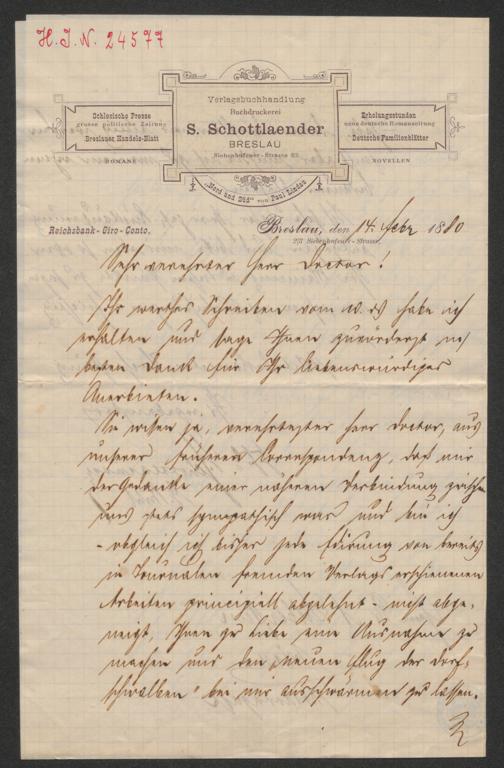 H. I. N. 24577
Verlagsbuchhandlung
Buchdruckerei
S. Schottlaender
BRESLAU
Siebenhufener-Strasse 2/3
Schlesische Presse
grosse politische Zeitung
Breslauer Handels-Blatt
ROMANE
Erholungsstunden
neue deutsche Romanzeitung
Deutsche Familienblätter
NOVELLEN
„Nord und Süd" von Paul Lindau
Reichsbank-Giro-Conto.
Breslau, den 14. Febr 1880
2/3 Siebenhufener-Strasse.
Sehr verehrter Herr Doctor!
Ihr werthes Schreiben vom 10. ds habe ich
erhalten und sage Ihnen zuvörderst
besten Dank für Ihr liebenswürdiges
Anerbieten.
Sie wissen ja, verehrtester Herr Doctor, aus
unserer früheren Correspondenz, daß mir
der Gedanke einer näheren Verbindung zwischen
uns stets sympathisch war und bin ich
- obgleich ich bisher jede Edirung von bereits
in Journalen fremden Verlags erschienenen
Arbeiten principiell abgelehnt - nicht abge-
neigt, Ihnen zu Liebe eine Ausnahme zu
machen und den „neuen Flug der Dorf-
schwalben" bei mir ausschwärmen zu lassen.